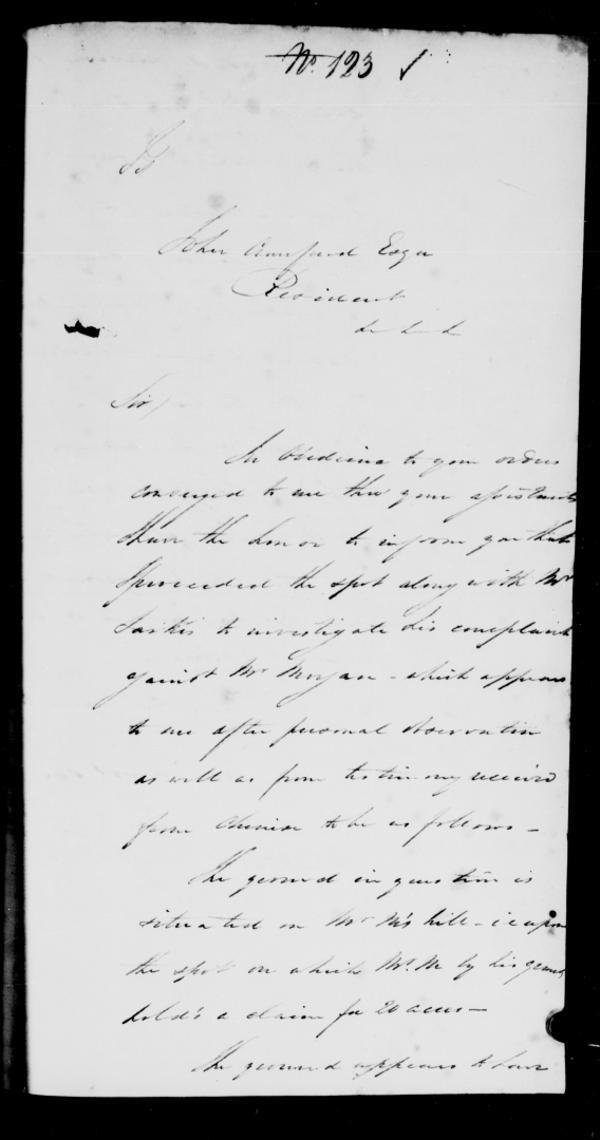 No. 123 ✓
To
John Crawfurd Esqr
Resident
&c &c &c
Sir,
In Obedience to your orders
conveyed to me thro your assistant
I have the honor to inform you that
I proceeded the spot along with Mr
Sarkis to investigate his complaint
against Mr Morgan - which appears
to me after personal observation
as well as from testimony received
from Chinese to be as follows -
The ground in question is
situated on Mr M's hill - i e upon
the spot on which Mr. M by his grant
hold's a claim for 20 acres -
The ground appears to have